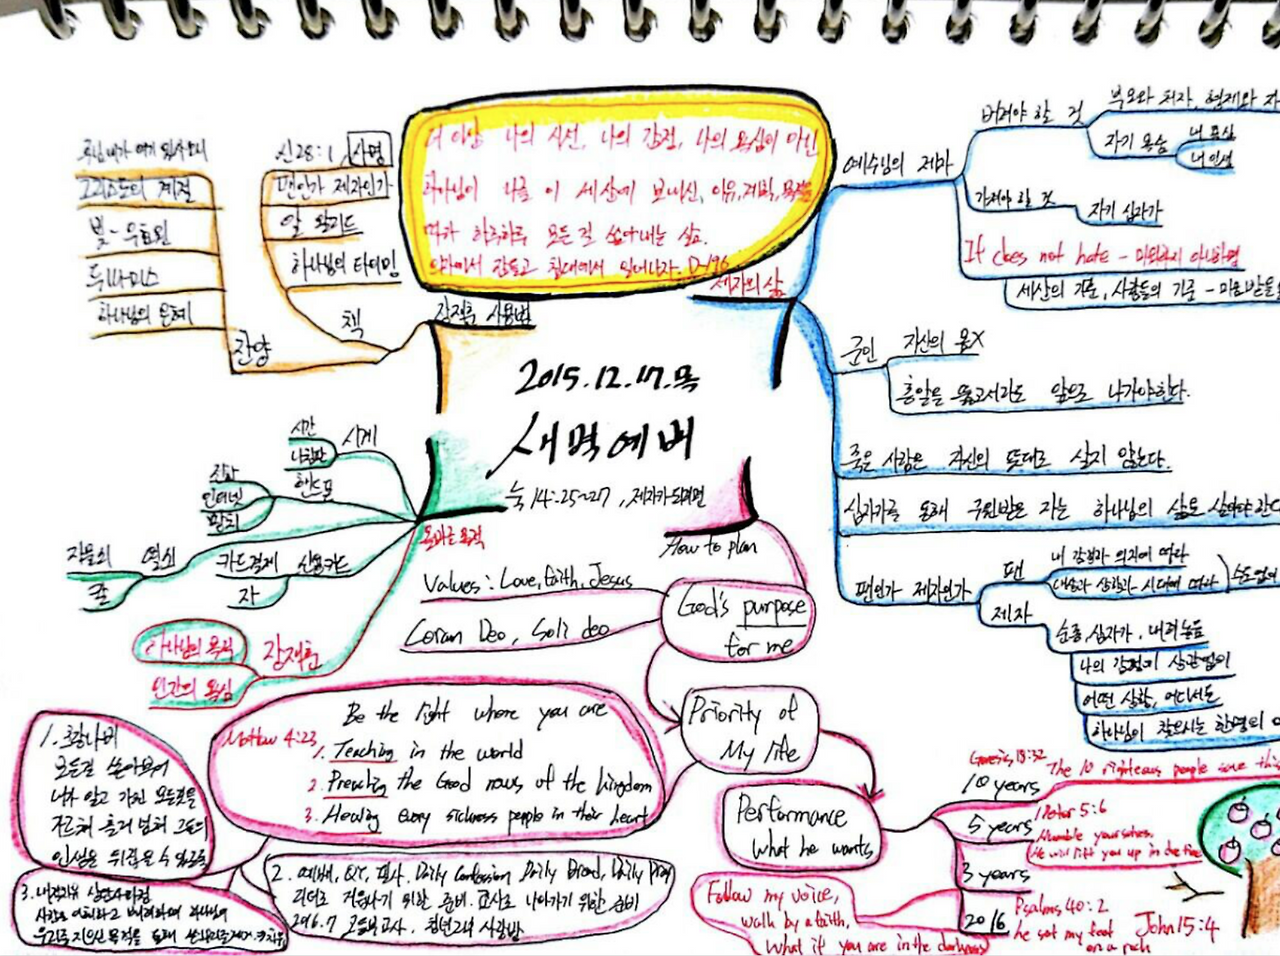 더 이상 나의 시선, 나의 감정, 나의 욕심이 아닌
하나님이 나를 이 세상에 보내신, 이유, 계획, 목적을
따라 하루하루 모든걸 쏟아내는 삶.
D-176
2015.12.17.목
새벽예배
눅 14:25~27, 제자가 되려면
강재훈 사용법
책
신28:1, 사명
팬인가 제자인가
알 왈리드
하나님의 타이밍
찬양
그리스도의 계절
빛 - 우효원
두나미스
하나님의 은혜
제자의 삶
예수님의 제자
버려야 할 것
부모와 처자, 형제와
자기 목숨
내 욕심
내 인생
가져야 할 것
자기 십자가
It does not hate - 미워하지 아니하면
세상의 기준, 사람들의 기준 -
군인
자신의 몸X
총알을 뚫고서라도 앞으로 나가야한다.
죽은 사람은 자신의 뜻대로 살지 않는다.
십자가를 통해 구원받은 자는 하나님의 삶도 살아야 한다
팬인가 제자인가
팬
내 감정과 의지에 따라
내 상황과 시대에 따라
제자
순종, 십자가, 내려놓음
나의 감정이 상관없이
어떤 상황, 어디서든
하나님이 찾으시는 한명의
시계
시간
나침판
핸드폰
전화
인터넷
열쇠
자물쇠
신용카드
카드결제
자
강재훈
하나님의 목적
인간의 욕심
How to plan
God's purpose
for me
Values : Love, faith, Jesus
Coram Deo, Soli deo
Priority of
My life
Be the right where you are
Matthew 4:23
1. Teaching in the world
2. Preaching the Good news of the kingdom
3. Healing every sickness people in their heart
1. 호랑나비
모든걸 쏟아부어
내가 알고 가진 모든것을
2. 예배, QT, 필사, Daily Confession Daily Bread, Daily Pray
리더로 세움가기 위한 준비. 교사로 나아가기 위한 준비
2016.7 고등부교사, 청년2부 사랑방
Performance
What he wants
10 years
Genesis, 18:32
The 10 righteous people save this
5 years
1 Peter 5:6
Humble yourselves,
He will lift you up in due time
3 years
2016
Psalms 40:2
he set my feet
on a rock
Follow my voice,
walk by a faith,
What if you are in the darkness
John 15:4